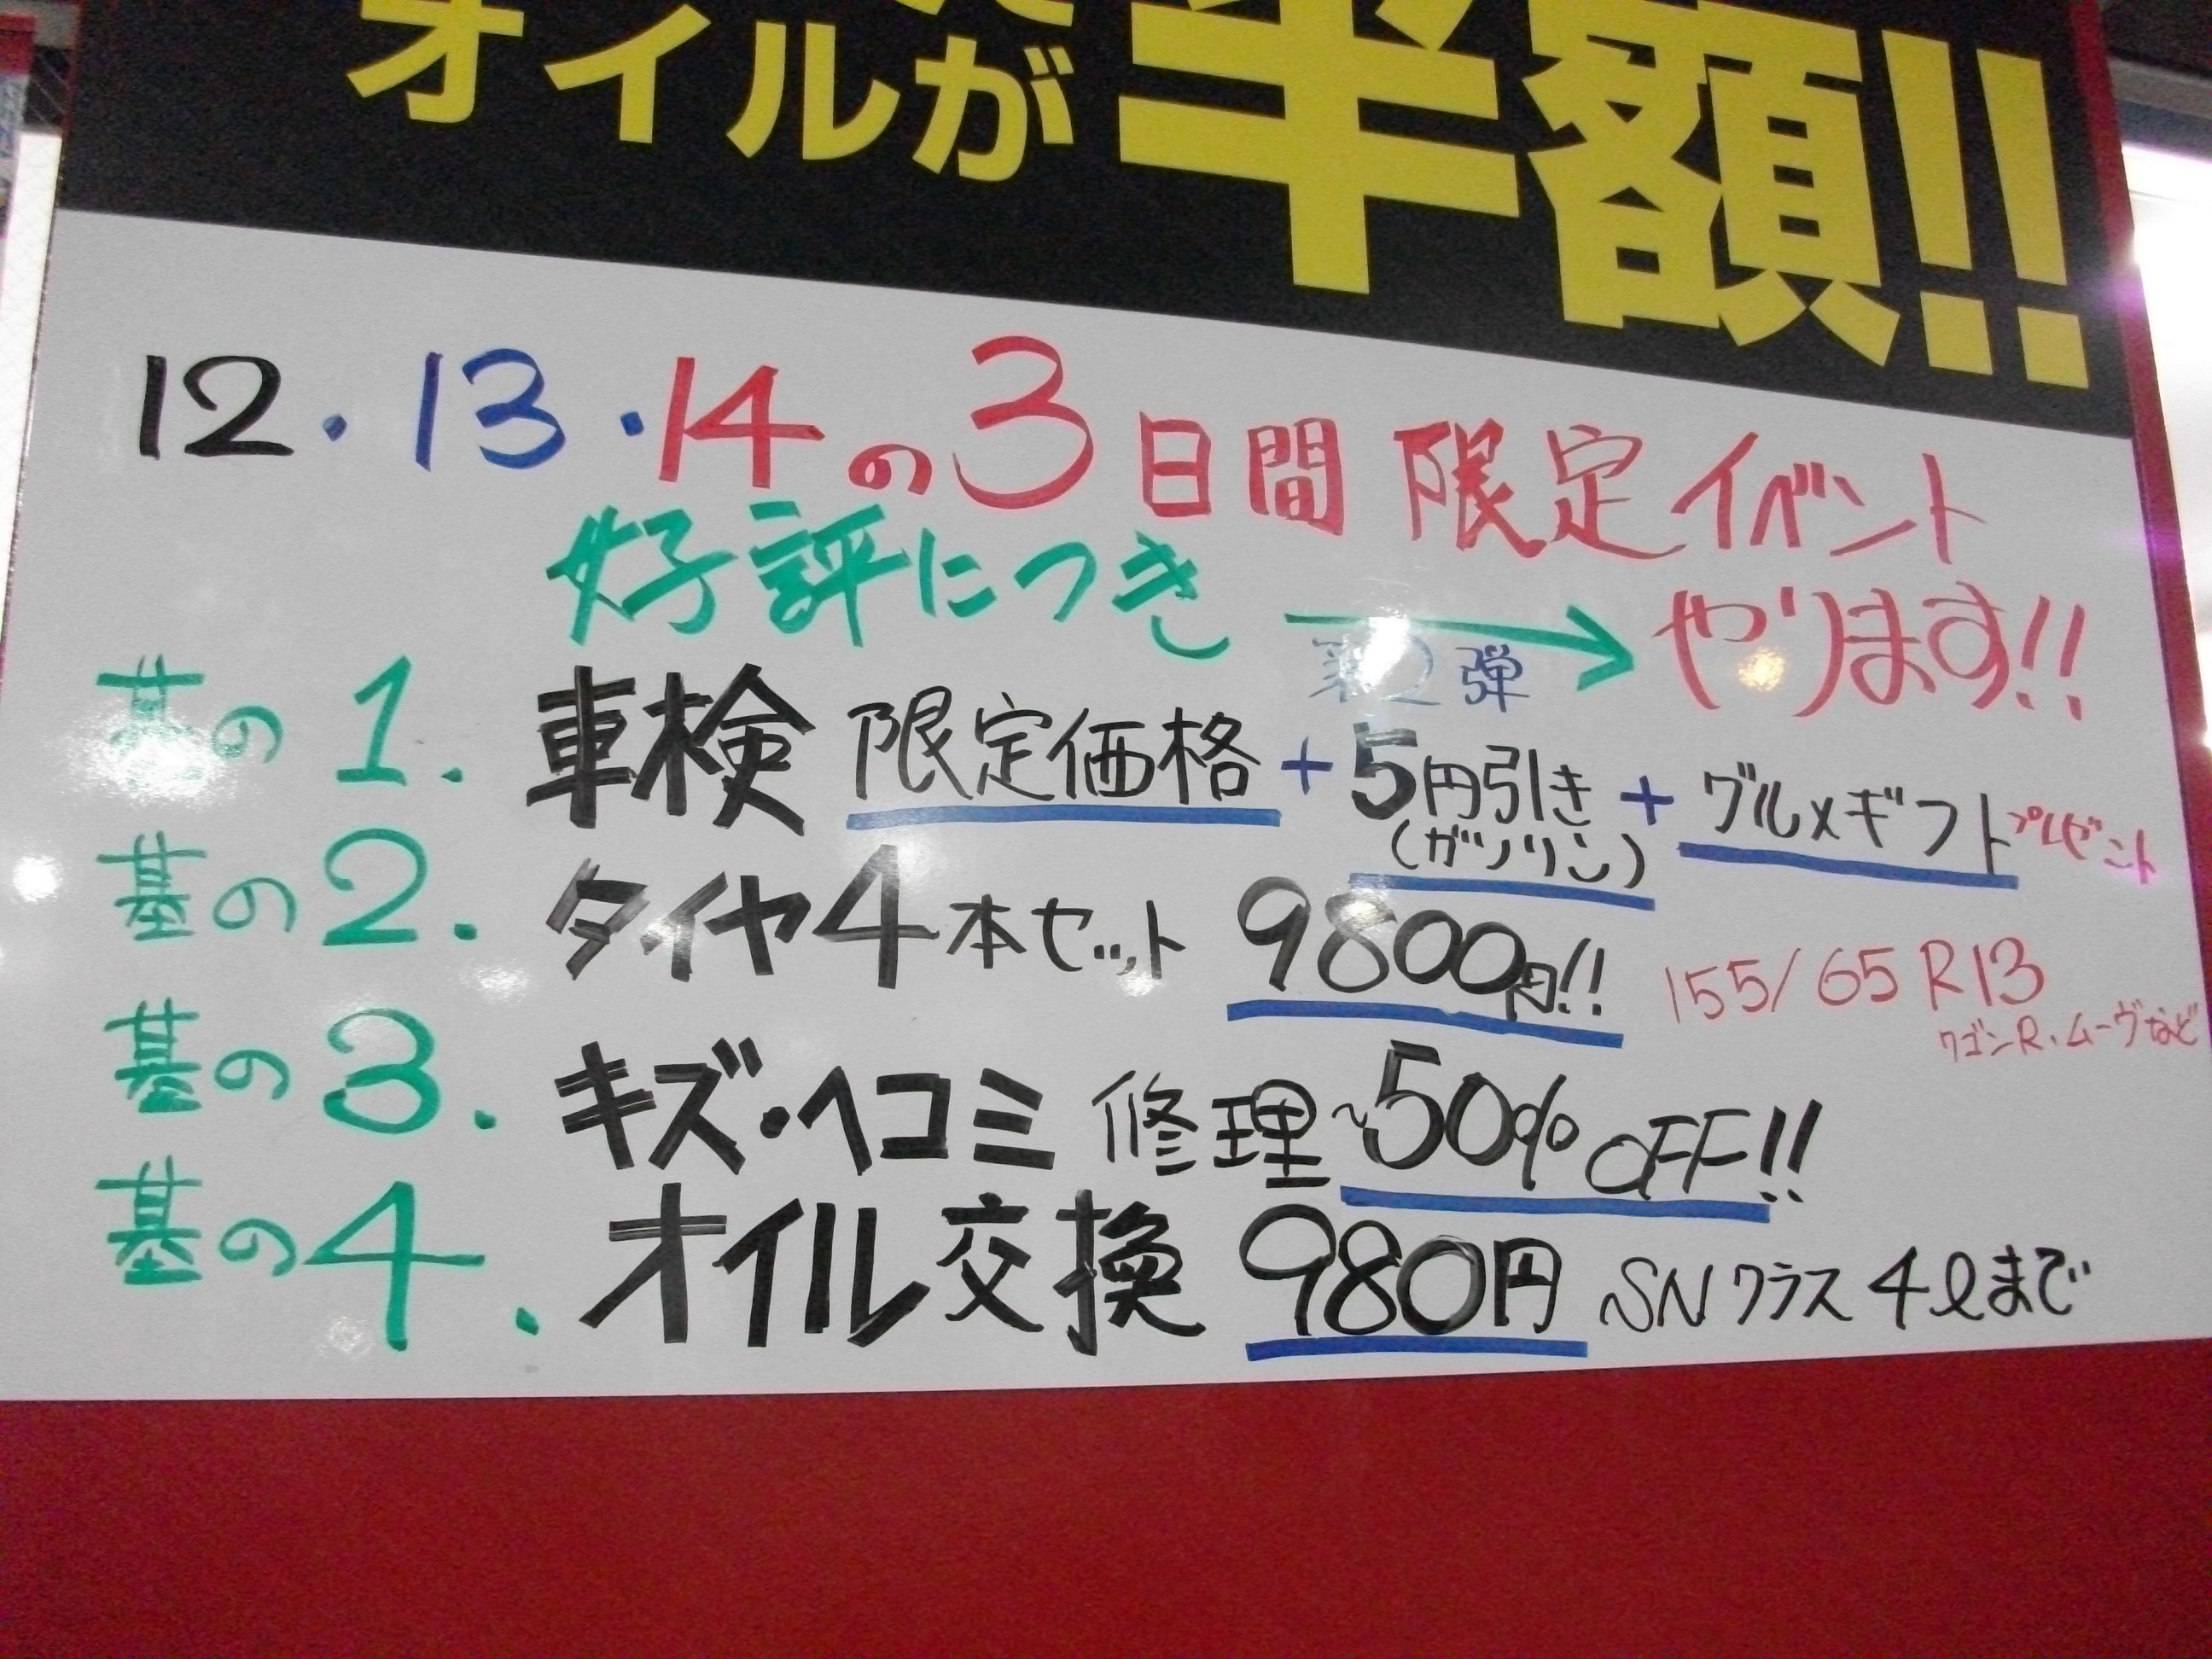 オイルが半額!!
12・13・14の3日間限定イベント
好評につき やります!!
第2弾
基の1. 車検 限定価格+5円引き+グルメギフトプレゼント
(ガソリン)
基の2. タイヤ4本セット 9800円!! 155/65R13
ワゴンR、ムーヴなど
基の3. キズ・ヘコミ 修理~50%OFF!!
基の4. オイル交換 980円 SNクラス4ℓまで